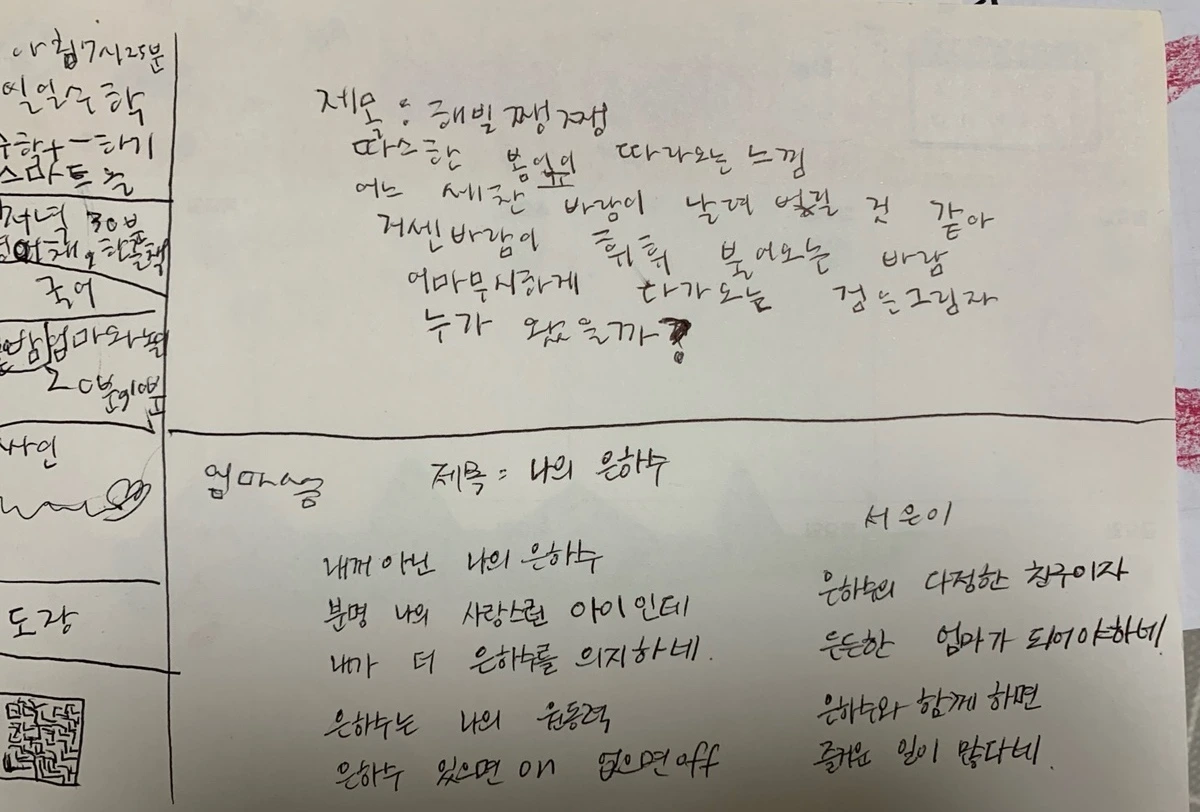 아침7시25분
씨일수학
스마트올
저녁 30분
국어
밤 엄마와
20분
사인
도장
제목 : 해빛쨍쨍
따스한 봄 따라오는 느낌
어느 세찬 바람이 날려 벌릴 것 같아
거센바람이 휘휘 불어오는 바람
어마무시하게 다가오는 검은그림자
누가 왔을까?
엄마글
제목 = 나의 은하수
내꺼 아닌 나의 은하수
분명 나의 사랑스런 아이인데
내가 더 은하수를 의지하네.
은하수는 나의 원동력
은하수 있으면 on 없으면 off
서은이
은하수의 다정한 친구이자
든든한 엄마가 되어야하네.
은하수와 함께 하면
즐거운 일이 많다네.